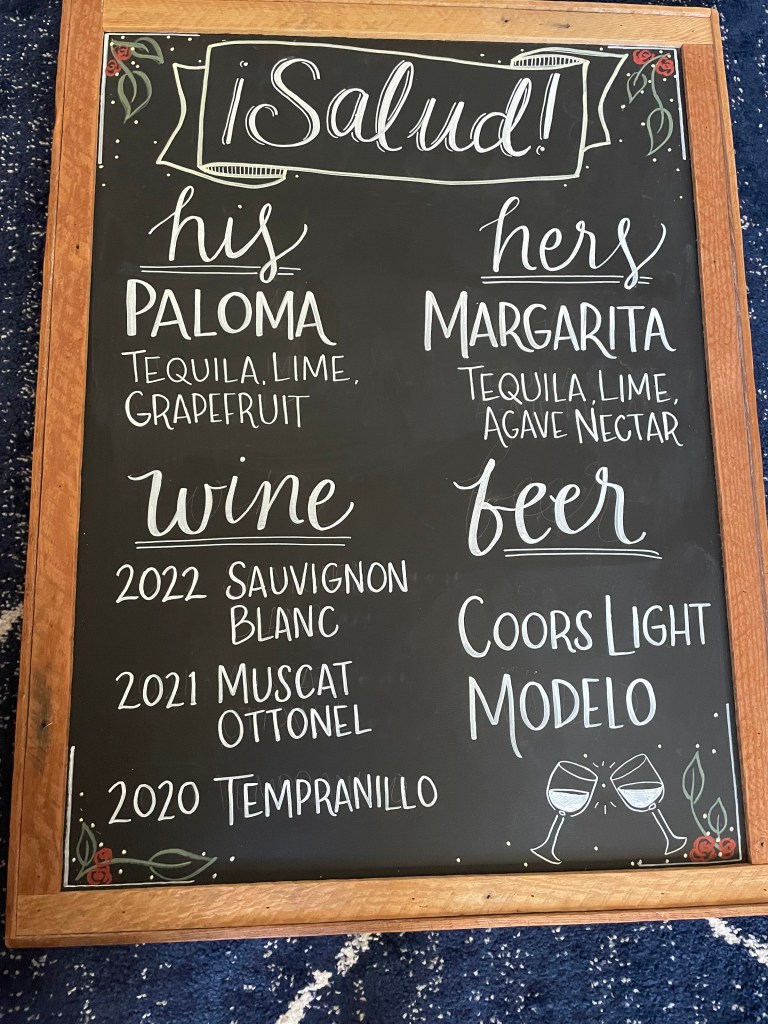 ¡Salud!
his
PALOMA
TEQUILA, LIME,
GRAPEFRUIT
hers
MARGARITA
TEQUILA, LIME,
AGAVE NECTAR
wine
2022 SAUVIGNON
BLANC
2021 MUSCAT
OTTONEL
2020 TEMPRANILLO
beer
COORS LIGHT
MODELO